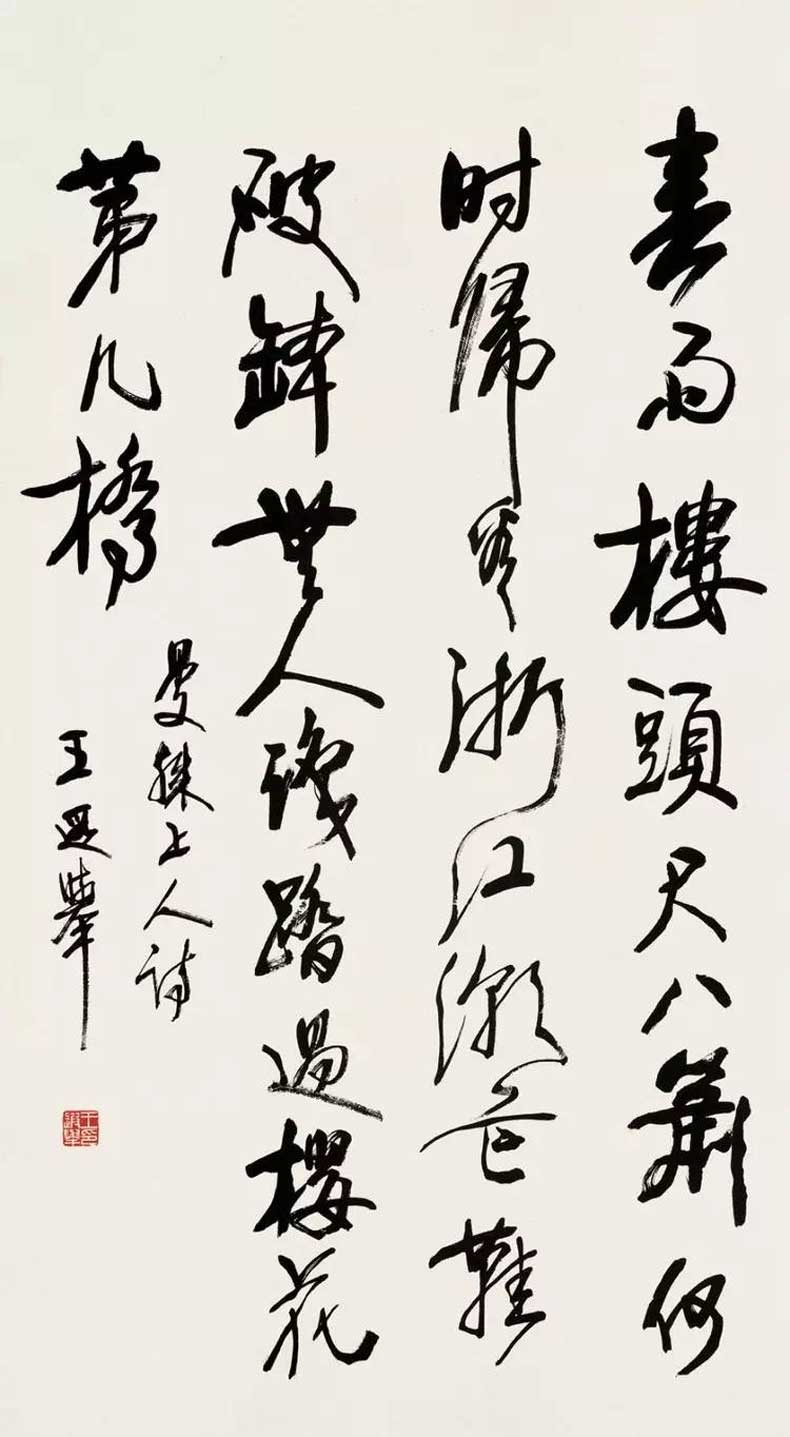 春雨樓頭尺八簫何
时歸看浙江潮芒鞋
破鉢無人識踏過櫻花
第几橋
曼殊上人诗
王遐舉
王遐舉印